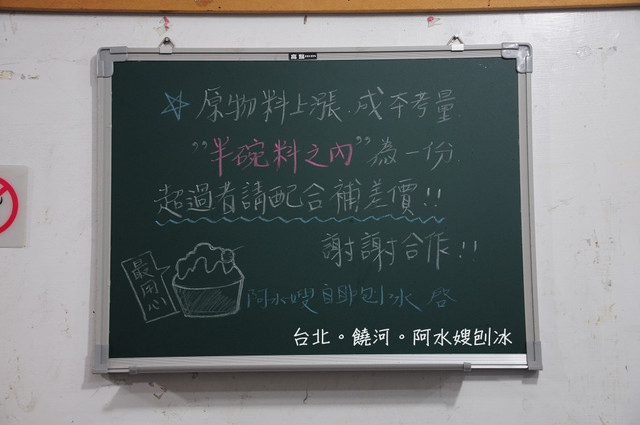 ☆原物料上漲.成本考量
"半碗料之內"為一份.
超過者請配合補差價!!
謝謝合作!!
最用心
阿水嫂自助刨冰 啓
台北。饒河。阿水嫂刨冰